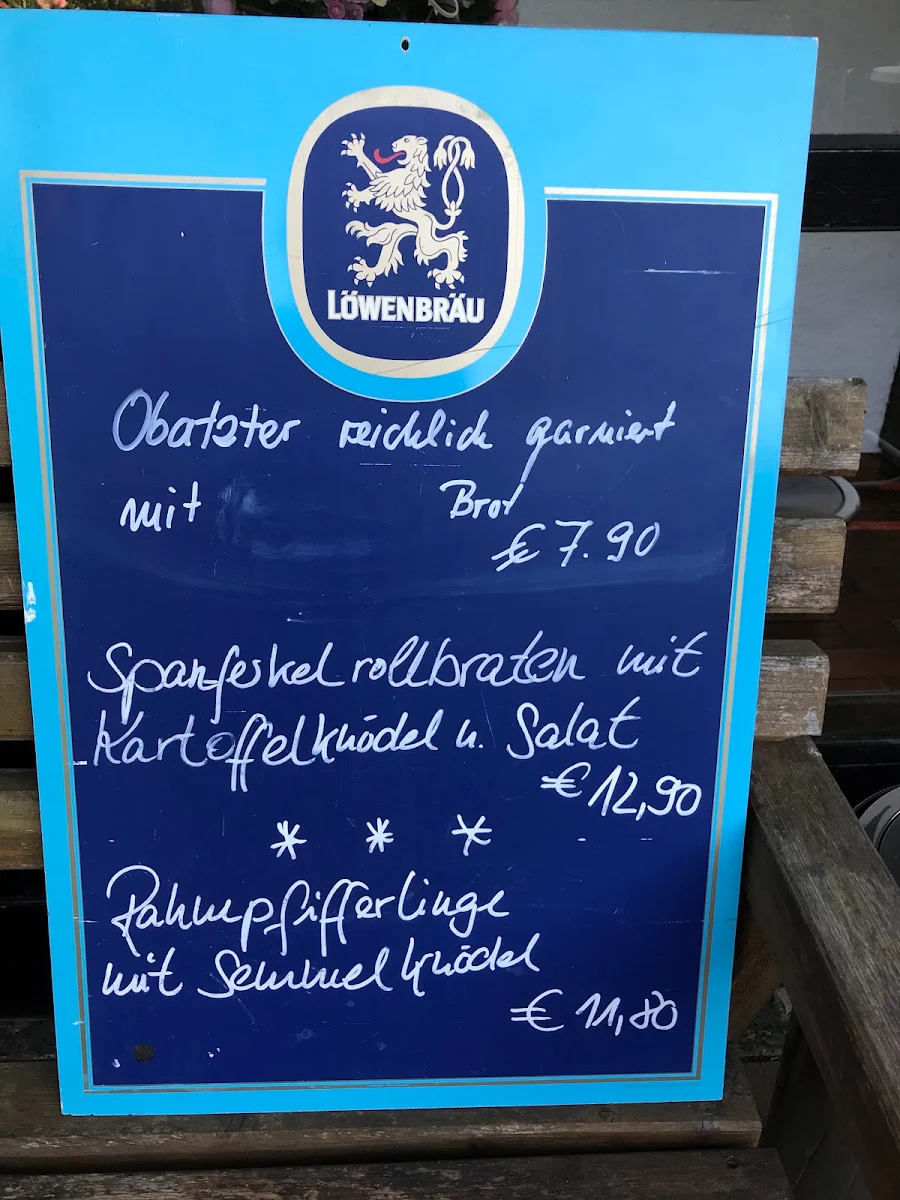 LÖWENBRÄU
Obatzter reichlich garniert
mit Brot
€ 7.90
Spanferkelrollbraten mit
Kartoffelknödel u. Salat
€ 12,90
* * *
Rahmpfifferlinge
mit Semmelknödel
€ 11,80